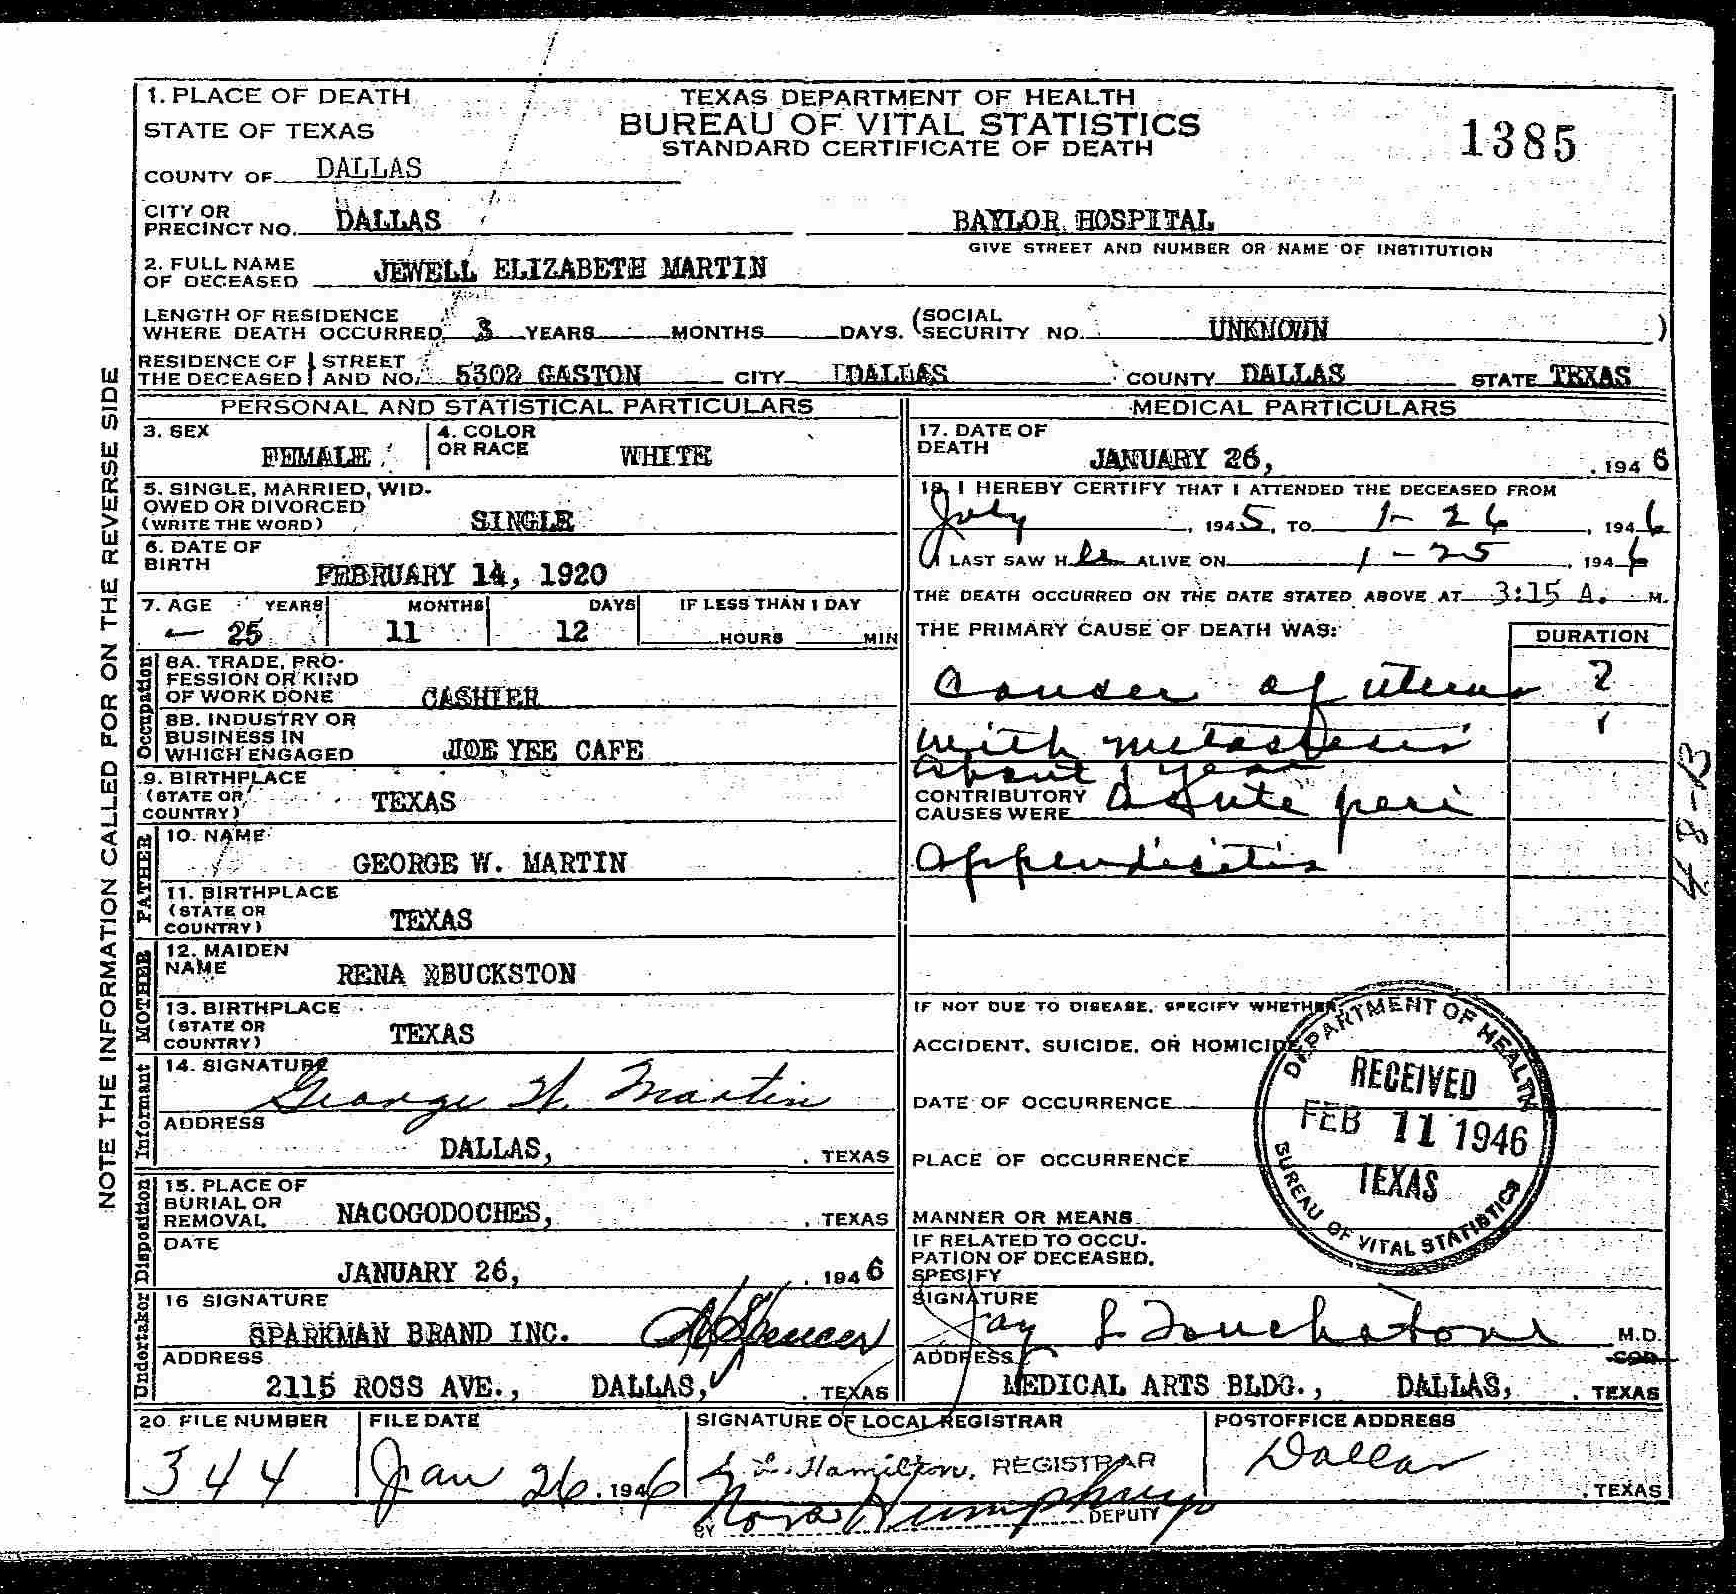 1. PLACE OF DEATH
STATE OF TEXAS
COUNTY OF DALLAS
TEXAS DEPARTMENT OF HEALTH
BUREAU OF VITAL STATISTICS
STANDARD CERTIFICATE OF DEATH
1385
CITY OR
PRECINCT NO. DALLAS
BAYLOR HOSPITAL
GIVE STREET AND NUMBER OR NAME OF INSTITUTION
2. FULL NAME
OF DECEASED JEWELL ELIZABETH MARTIN
LENGTH OF RESIDENCE
WHERE DEATH OCCURRED 3 YEARS MONTHS DAYS. (SOCIAL
SECURITY NO. UNKNOWN )
RESIDENCE OF STREET
THE DECEASED AND NO. 5302 GASTON CITY DALLAS COUNTY DALLAS STATE TEXAS
NOTE THE INFORMATION CALLED FOR ON THE REVERSE SIDE
PERSONAL AND STATISTICAL PARTICULARS
3. SEX
FEMALE
4. COLOR
OR RACE WHITE
5. SINGLE, MARRIED, WID-
OWED OR DIVORCED
(WRITE THE WORD) SINGLE
6. DATE OF
BIRTH FEBRUARY 14, 1920
7. AGE YEARS MONTHS DAYS IF LESS THAN 1 DAY
25 11 12 HOURS MIN
Occupation
8A. TRADE, PRO-
FESSION OR KIND
OF WORK DONE CASHIER
8B. INDUSTRY OR
BUSINESS IN
WHICH ENGAGED JOE YEE CAFE
9. BIRTHPLACE
(STATE OR
COUNTRY) TEXAS
FATHER
10. NAME
GEORGE W. MARTIN
11. BIRTHPLACE
(STATE OR
COUNTRY) TEXAS
MOTHER
12. MAIDEN
NAME RENA XBUCKSTON
13. BIRTHPLACE
(STATE OR
COUNTRY) TEXAS
Informant
14. SIGNATURE
George W. Martin
ADDRESS
DALLAS, , TEXAS
Disposition
15. PLACE OF
BURIAL OR
REMOVAL NACOGODOCHES, , TEXAS
DATE
JANUARY 26, , 1946
Undertaker
16 SIGNATURE
SPARKMAN BRAND INC. Spencer
ADDRESS
2115 ROSS AVE., DALLAS, , TEXAS
MEDICAL PARTICULARS
17. DATE OF
DEATH JANUARY 26, , 1946
18. I HEREBY CERTIFY THAT I ATTENDED THE DECEASED FROM
July , 1945, TO 1-26 , 1946
I LAST SAW H er ALIVE ON 1-25 , 1946
THE DEATH OCCURRED ON THE DATE STATED ABOVE AT 3:15 A. M.
THE PRIMARY CAUSE OF DEATH WAS: DURATION
Cancer of uterus 2
with metastesis 1
about 1 year
CONTRIBUTORY
CAUSES WERE acute peri
appendicitis
48-B
IF NOT DUE TO DISEASE, SPECIFY WHETHER
ACCIDENT, SUICIDE, OR HOMICIDE
DATE OF OCCURRENCE
PLACE OF OCCURRENCE
MANNER OR MEANS
IF RELATED TO OCCU-
PATION OF DECEASED,
SPECIFY
DEPARTMENT OF HEALTH
RECEIVED
FEB 11 1946
TEXAS
BUREAU OF VITAL STATISTICS
SIGNATURE
Jay L Touchstone M.D.
ADDRESS
MEDICAL ARTS BLDG., DALLAS, , TEXAS
20. FILE NUMBER
344
FILE DATE
Jan 26, 1946
SIGNATURE OF LOCAL REGISTRAR
L. Hamilton, REGISTRAR
BY Nora Humphrey DEPUTY
POSTOFFICE ADDRESS
Dallas
, TEXAS